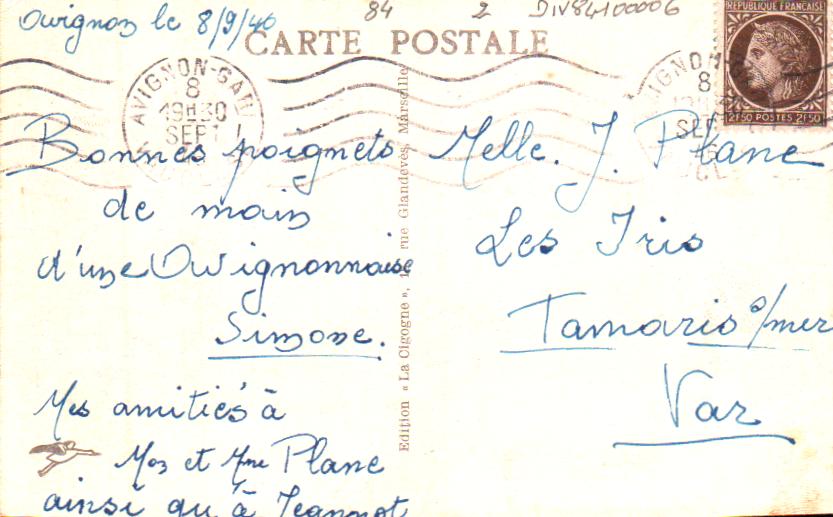 Avignon le 8/9/46
84 2 DIV84100006
CARTE POSTALE
AVIGNON-GARE
8
19H30
SEPT
REPUBLIQUE FRANÇAISE
2F50 POSTES 2F50
8
SEPT
Bonnes poignets
de main
d'une Avignonnaise
Simone.
Mes amitiés à
Mon et Mme Plane
ainsi qu'à Jeannot
Edition « La Cigogne », rue Glandevès, Marseille
Melle. J. Plane
Les Iris
Tamaris s/mer
Var